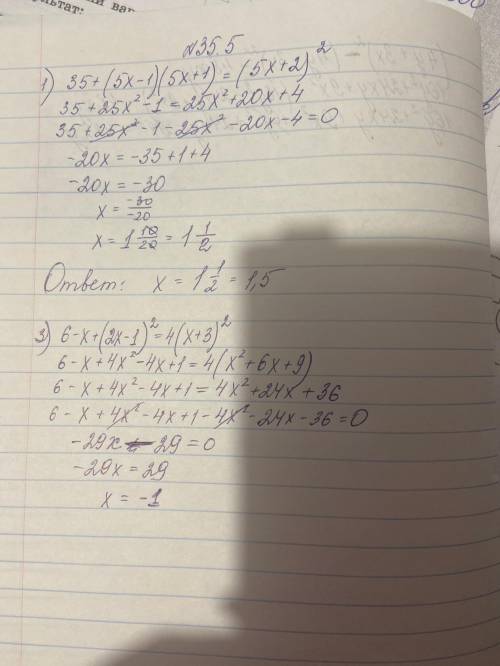 вар
льтат:
№355
1) 35+(5x-1)(5x+1)=(5x+2)²
35+25x²-1=25x²+20x+4
35+25x²-1-25x²-20x-4=0
-20x=-35+1+4
-20x=-30
x=-30/-20
x=1 10/20=1 1/2
Ответ: x=1 1/2=1,5
3) 6-x+(2x-1)²=4(x+3)²
6-x+4x²-4x+1=4(x²+6x+9)
6-x+4x²-4x+1=4x²+24x+36
6-x+4x²-4x+1-4x²-24x-36=0
-29x-29=0
-29x=29
x=-1